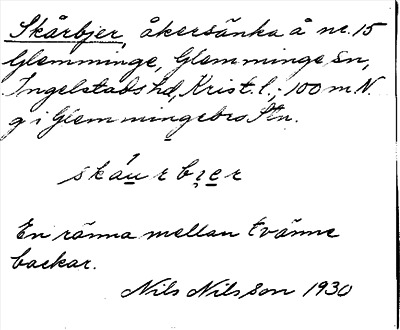 Skårbjer, åkersänka å nr. 15
Glemminge, Glemminge sn,
Ingelstads hd, Krist. l.; 100 m N.
g i Glemmingebro Stn.
skáu r bi̯e r
En ränna mellan tvänne
backar.
Nils Nilsson 1930